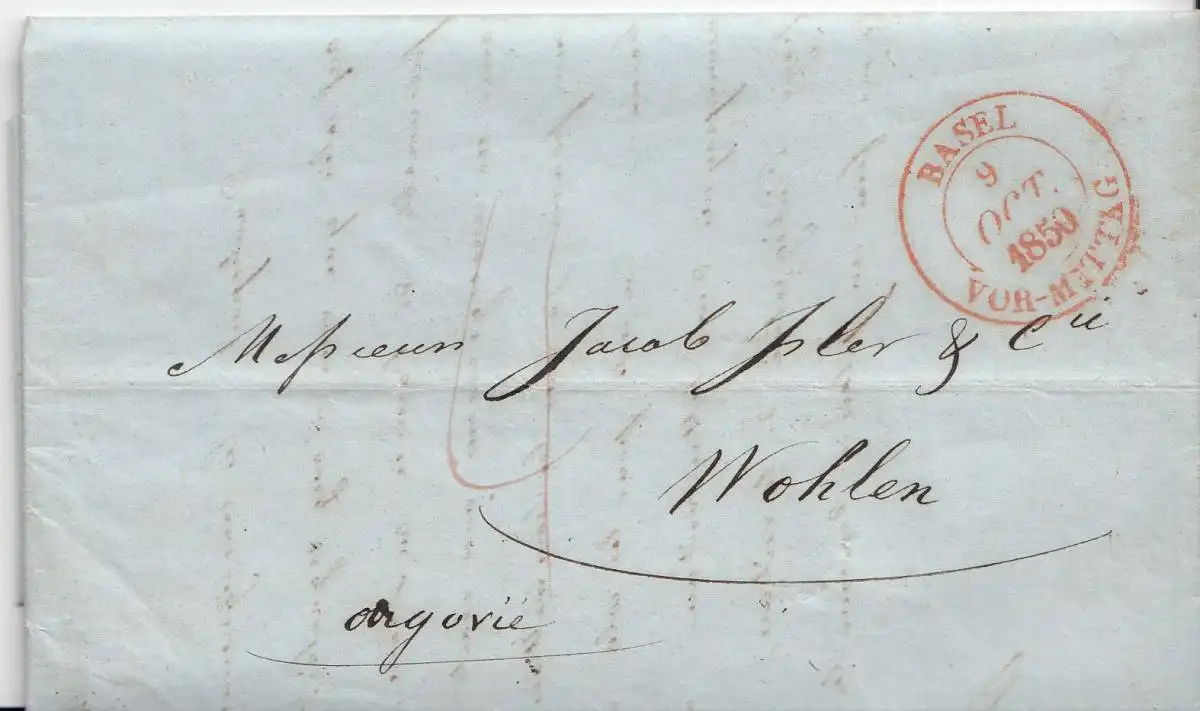 BASEL
9
OCT.
1850
VOR-MITTAG
Messieurs Jacob Isler & Cie
Wohlen
argovie
4